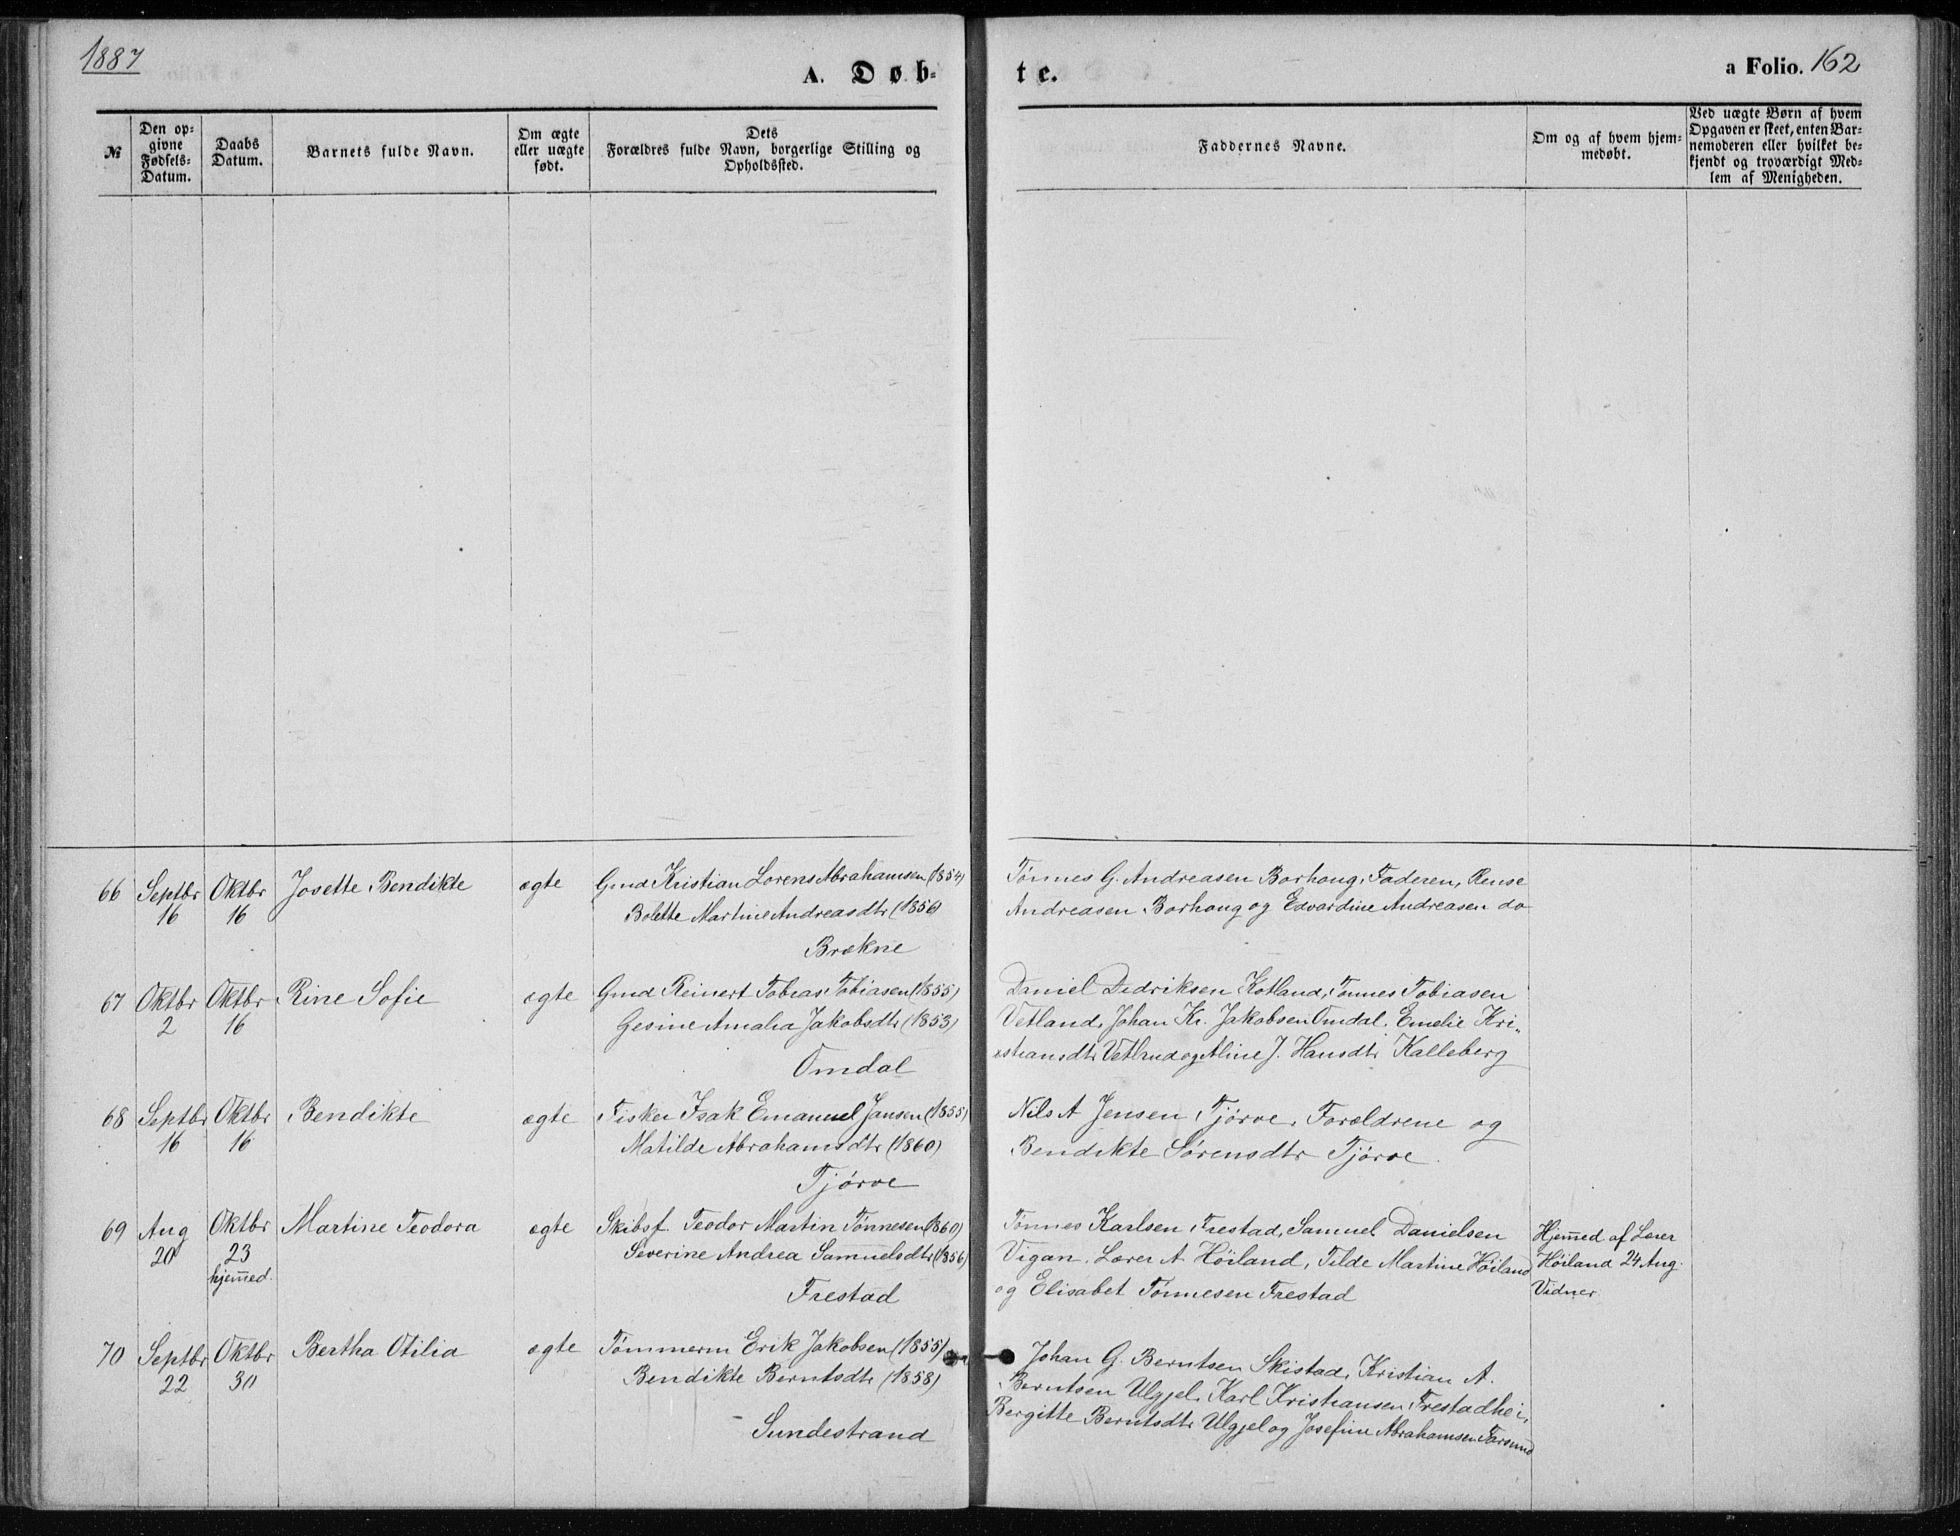 1887
A. Døb-
te.
a Folio. 162
№
Den op-
givne
Fødsels-
Datum.
Daabs
Datum.
Barnets fulde Navn.
Om ægte
eller uægte
født.
Dets
Forældres fulde Navn, borgerlige Stilling og
Opholdssted.
Faddernes Navne.
Om og af hvem hjem-
medøbt.
Ved uægte Børn af hvem
Opgaven er skeet, enten Bar-
nemoderen eller hvilket be-
kjendt og troværdigt Med-
lem af Menigheden.
66
Septbr
16
Oktbr
16
Josette Bendikte
ægte
Gmd Kristian Lorens Abrahamsen (1854)
Bolette Martine Andreasdtr (1856)
Brækne
Tønnes G. Andreasen Borhaug, Faderen, Rense
Andreasen Borhaug og Edvardine Andreasen do
67
Oktbr
2
Oktbr
16
Rine Sofie
ægte
Gmd Reinert Tobias Tobiasen (1855)
Gesine Amalia Jakobsdtr (1853)
Omdal
Daniel Didriksen Kotland, Tønnes Tobiasen
Vetland, Johan Kr. Jakobsen Omdal, Emelie Kri-
stiansdtr Vetland og Aline J. Hansdtr Kalleberg
68
Septbr
16
Oktbr
16
Bendikte
ægte
Fisker Isak Emanuel Jansen (1855)
Matilde Abrahamsdtr (1860)
Tjørve
Nils A Jensen Tjørve, Forældrene og
Bendikte Sørensdtr Tjørve.
69
Aug
20
Oktbr
23
hjemmed.
Martine Teodora
ægte
Skibsf. Teodor Martin Tønnesen (1860)
Severine Andrea Samuelsdtr (1856)
Frestad
Tønnes Karlsen Frestad, Samuel Danielsen
Vigan, Lærer A Høiland, Tilde Martine Høiland
og Elisabet Tønnesen Frestad
Hjemmed af Lærer
Høiland 24 Aug.
Vidner
70
Septbr
22
Oktbr
30
Bertha Otilia
ægte
Tømmerm Erik Jakobsen (1855)
Bendikte Berntsdtr (1858)
Sundestrand
Johan G. Berntsen Skistad, Kristian A.
Berntsen Ulgjel, Karl Kristiansen Frestadhei,
Bergitte Berntsdtr Ulgjel og Josefine Abrahamsen Farsund